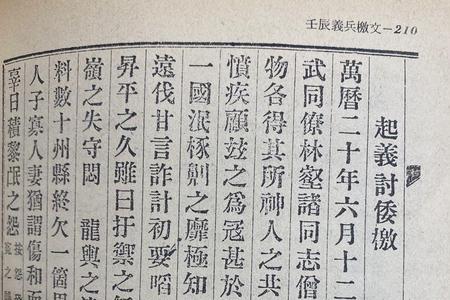 壬辰義兵檄文—210
起義討倭檄
萬曆二十年六月十二
武同僚林壑諸同志僧
物各得其所神人之共
憤疾顧玆之爲寇甚於
一國泯椓剝之靡極知
遠伐甘言詐計初要啗
昇平之久雖曰扞禦之
嶺之失守悶 龍輿之
料數十州縣終欠一箇男
人子寡人妻猶謂傷和而
辜日積黎氓之怨